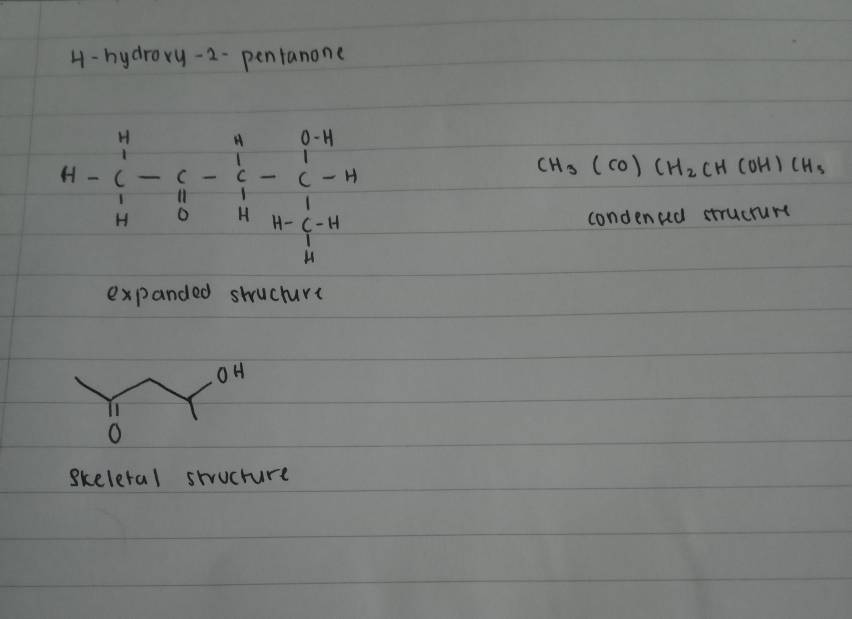 4-hydroxy-2-pentanone
H H O-H
H - C - C - C - C - H
H O H H-C-H
H
CH3 (CO) CH2CH (OH) CH3
condensed structure
expanded structure
OH
O
Skeletal structure